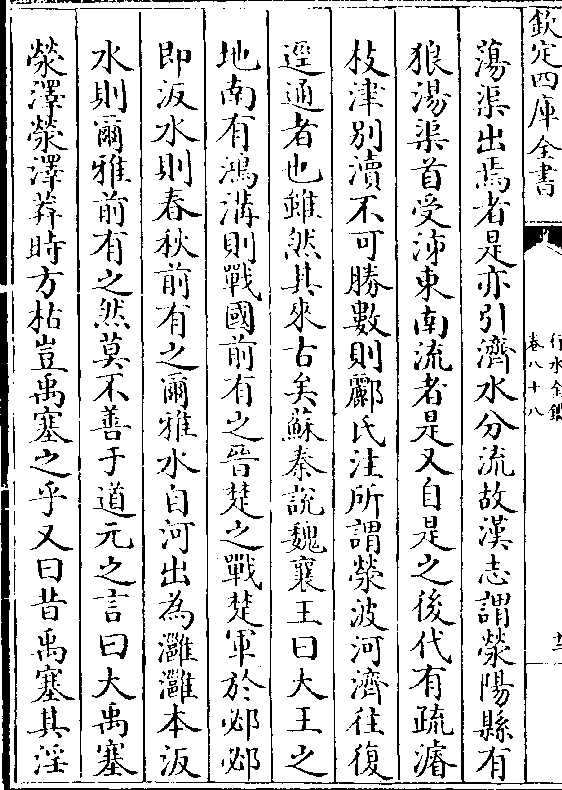 欽定四庫全書
行水金鑑
卷八十八
十三
蕩渠出焉者是亦引濟水分流故漢志謂滎陽縣有
狼湯渠首受沛東南流者是又自是之後代有疏濬
枝津別瀆不可勝數則酈氏注所謂滎波河濟往復
逕通者也雖然其來古矣蘇秦說魏襄王曰大王之
地南有鴻溝則戰國前有之晉楚之戰楚軍於邲邲
即汳水則春秋前有之爾雅水自河出為灉灉本汳
水則爾雅前有之然莫不善于道元之言曰大禹塞
滎澤滎澤莽時方枯豈禹塞之乎又曰昔禹塞其淫